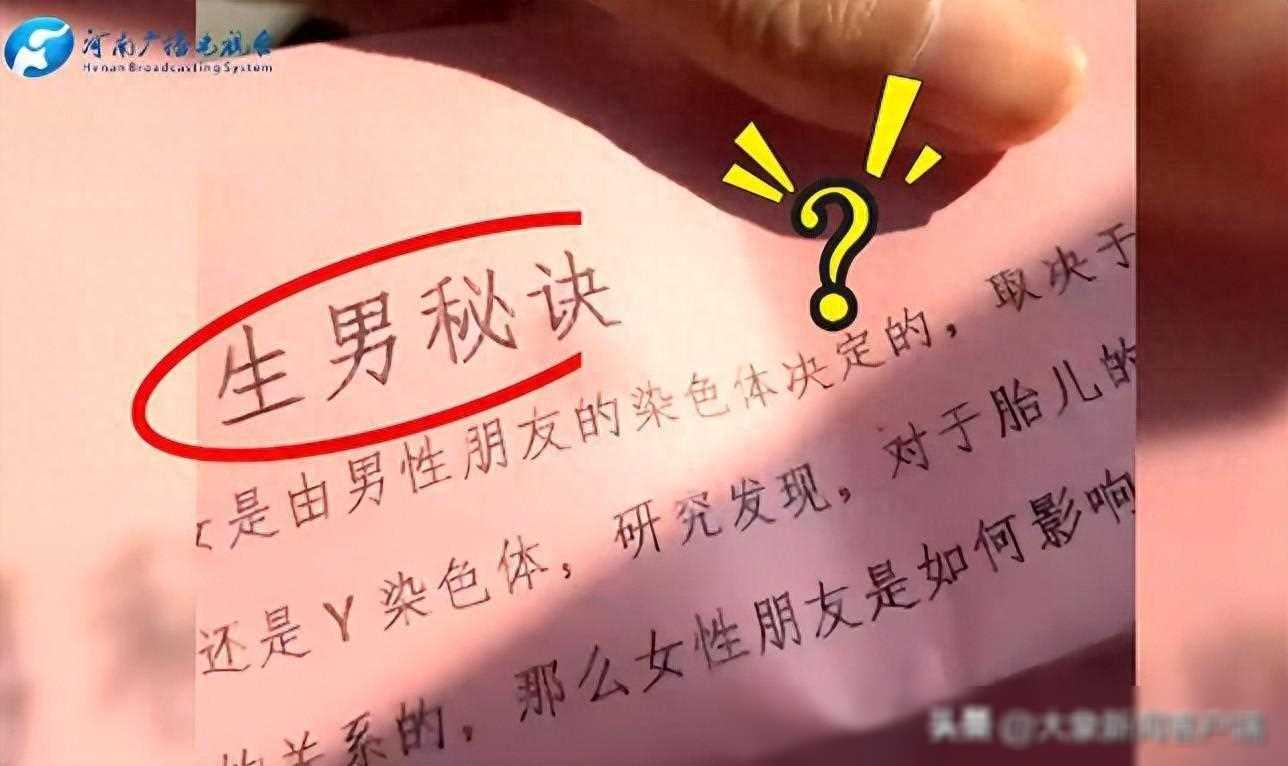 河南广播电视台
Henan Broadcasting System
?
生男秘诀
是由男性朋友的染色体决定的，取决于
还是Y染色体，研究发现，对于胎儿的
的关系的，那么女性朋友是如何影响
头条 @大象新闻客户端